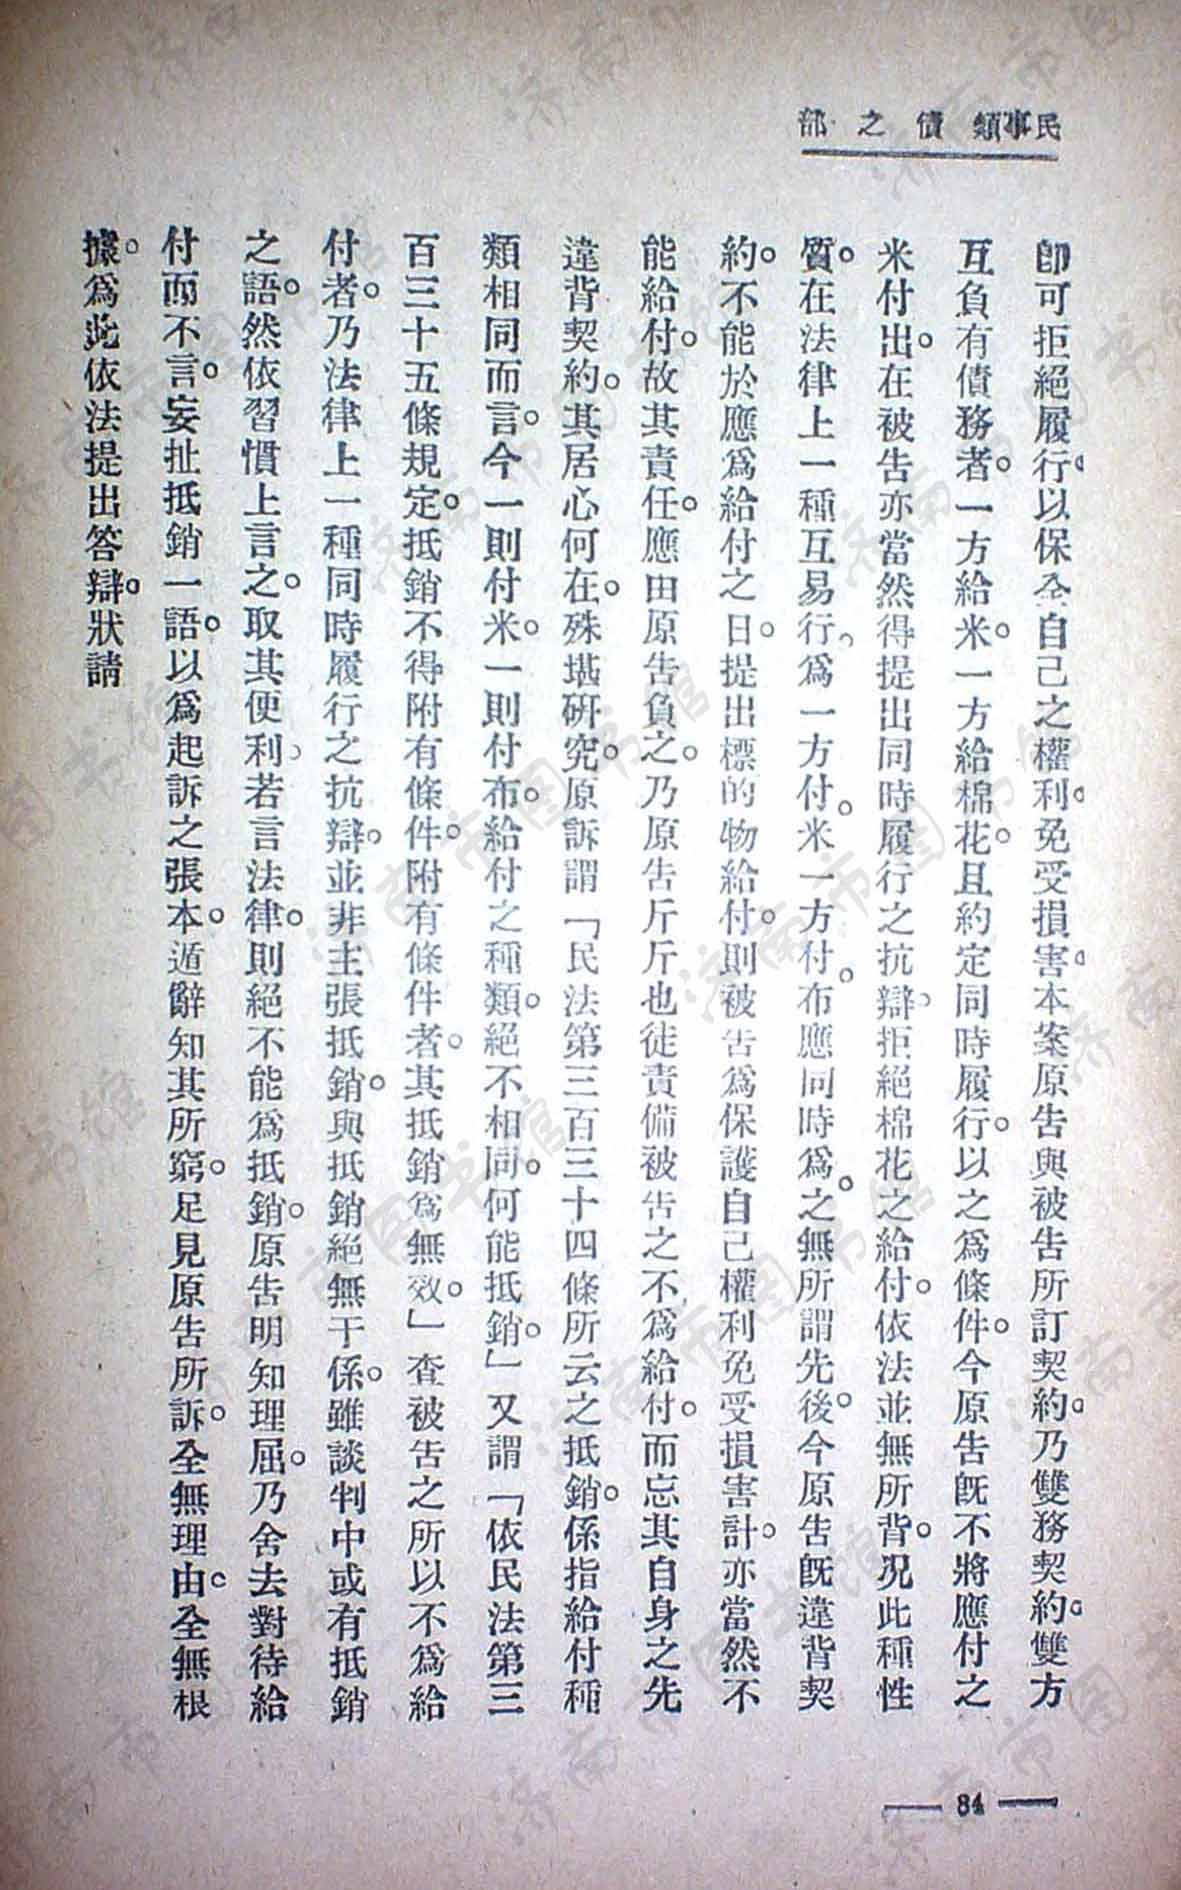 民事類債之部
卽可拒絕履行。以保全自己之權利。免受損害。本案原告與被告所訂契約。乃雙務契約。雙方
互負有債務者。一方給米。一方給棉花。且約定同時履行。以之爲條件。今原告旣不將應付之
米付出。在被告亦當然得提出同時履行之抗辯。拒絕棉花之給付。依法並無所背。况此種性
質。在法律上一種互易行爲。一方付米。一方付布。應同時爲之。無所謂先後。今原告旣違背契
約。不能於應爲給付之日。提出標的物給付。則被告爲保護自己權利免受損害計。亦當然不
能給付。故其責任。應由原告負之。乃原告斤斤也徒責備被告之不爲給付。而忘其自身之先
違背契約。其居心何在。殊堪硏究。原訴謂「民法第三百三十四條所云之抵銷。係指給付種
類相同而言。今一則付米。一則付布。給付之種類。絕不相同。何能抵銷。」又謂「依民法第三
百三十五條規定。抵銷不得附有條件。附有條件者。其抵銷爲無效。」查被告之所以不爲給
付者。乃法律上一種同時履行之抗辯。並非主張抵銷。與抵銷絕無干係。雖談判中或有抵銷
之語。然依習慣上言之。取其便利。若言法律。則絕不能爲抵銷。原告明知理屈。乃舍去對待給
付而不言。妄扯抵銷一語。以爲起訴之張本。遁辭知其所窮。足見原告所訴。全無理由。全無根
據。爲此依法提出答辯。狀請
84